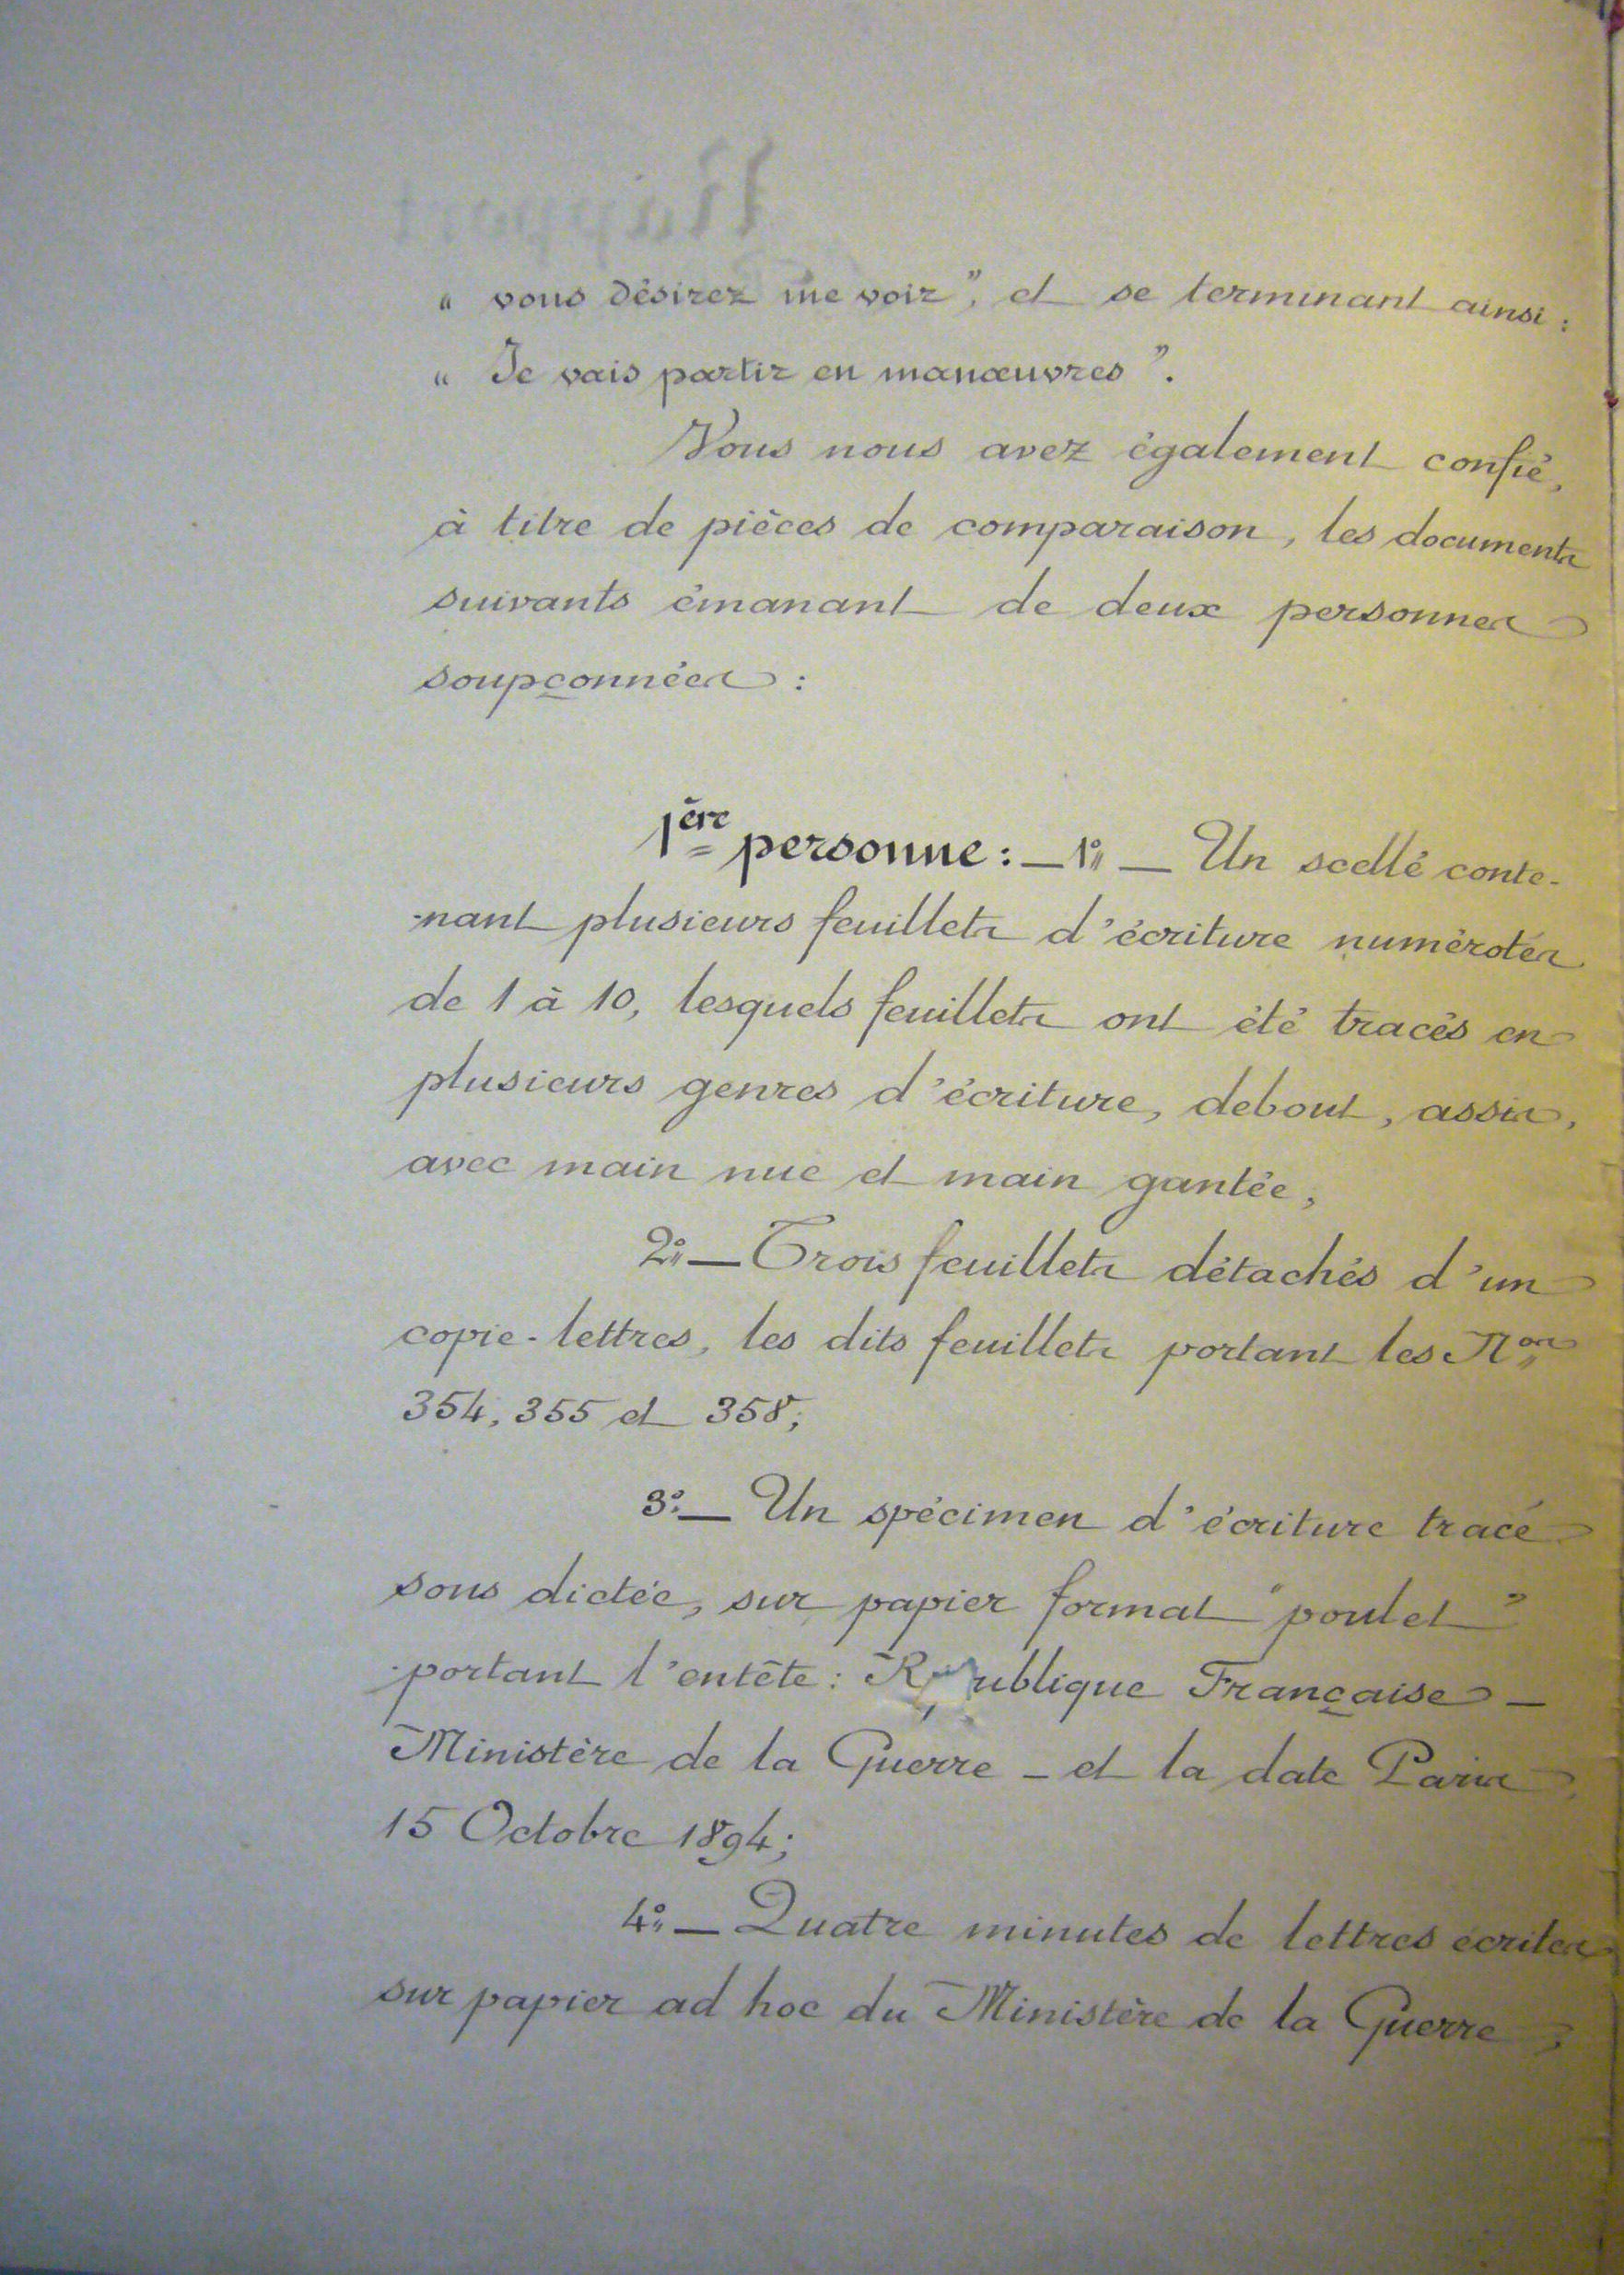 « vous désirez me voir", et se terminant ainsi :
« Je vais partir en manœuvres ".
Vous nous avez également confié,
à titre de pièces de comparaison, les documents
suivants émanant de deux personnes
soupçonnées :
1ère personne : — 1° — Un scellé conte-
-nant plusieurs feuillets d'écriture numérotés
de 1 à 10, lesquels feuillets ont été tracés en
plusieurs genres d'écriture, debout, assis,
avec main nue et main gantée,
2° — Trois feuillets détachés d'un
copie-lettres, les dits feuillets portant les Nos
354, 355 et 358;
3° — Un spécimen d'écriture tracé
sous dictée, sur papier format "poulet"
portant l'entête : République Française —
Ministère de la Guerre — et la date Paris,
15 Octobre 1894;
4° — Quatre minutes de lettres écrites
sur papier ad hoc du Ministère de la Guerre;